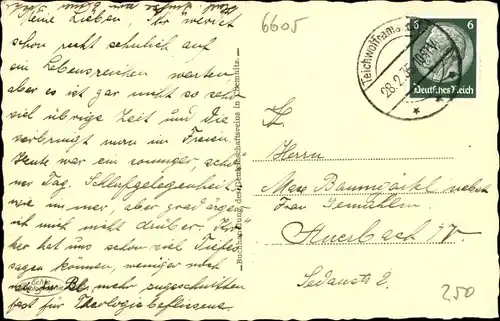 Meine Lieben, Ihr werdet
schon recht sehnlich auf
ein Lebenszeichen warten,
aber es ist gar nicht so sehr
viel übrige Zeit und die
verbringt man im Freien.
Heute war ein sonniger, schö-
ner Tag. Schlafgelegenheit
wie immer, aber grad ärgern
ich mich nicht drüber.
ker hat uns schon viel Tiefes
sagen können, weniger noch
mehr zugeschnitten
fest für Theologie beflissene.
Buchhandlung des Gemeinschaftsvereins in Chemnitz.
6605
Teichwolframs
28.2.35
6 6
Deutsches Reich
Herrn
Max Baumgärtel nebst
Frau Gemahlin
Auerbach i/V.
Sedanstr. 2.
250